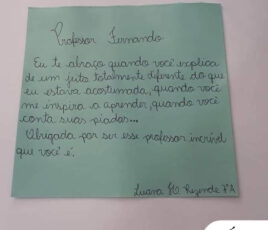 Professor Fernando
Eu te abraço quando você explica
de um jeito totalmente diferente do que
eu estava acostumada, quando você
me inspira a aprender, quando você
conta suas piadas...
Obrigada por ser esse professor incrível
que você é.
Luana Rezende 7ºA